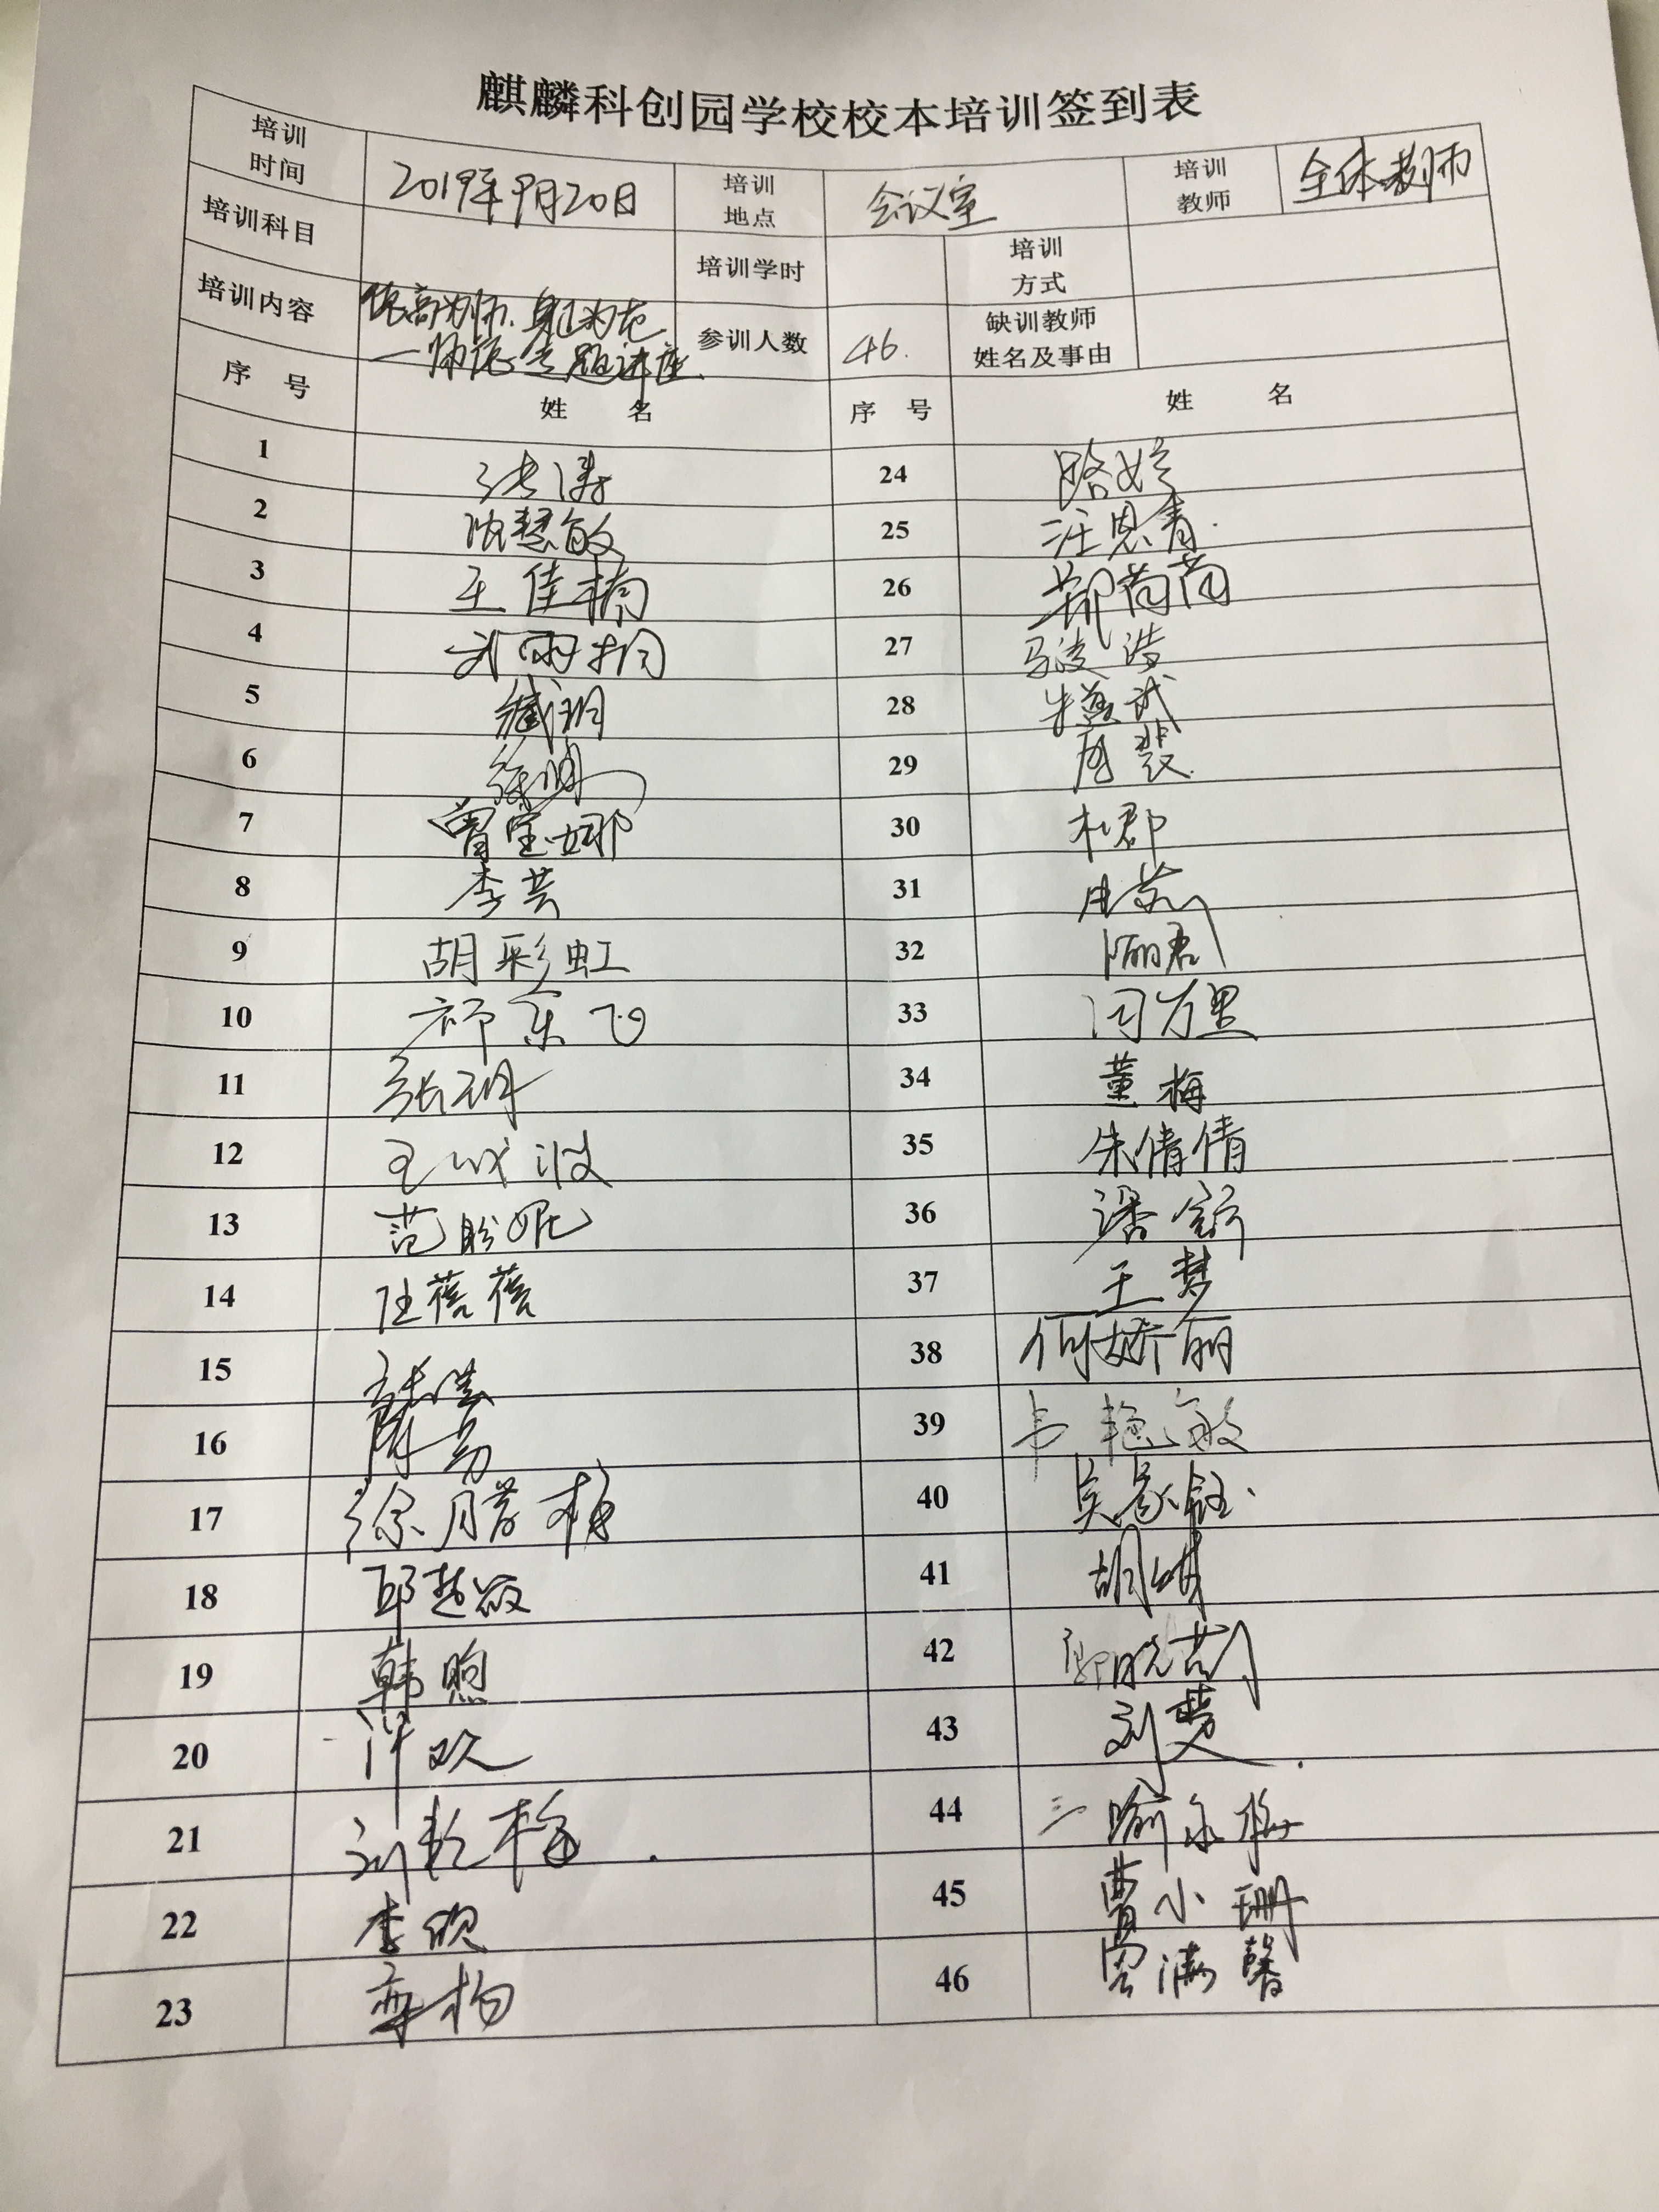 麒麟科创园学校校本培训签到表
培训时间 2019年9月20日 培训地点 会议室 培训教师 全体教师
培训科目 培训学时 培训方式
培训内容 德高为师、身正为范
—师德专题讲座 参训人数 46. 缺训教师姓名及事由
序 号 姓 名 序 号 姓 名
1 张涛 24 路婷
2 沈慧敏 25 汪思青.
3 王佳楠 26 郑茜茜
4 27 马凌浩
5 臧玥 28
6 29 周裴
7 曾宝娜 30 杜郡
8 李芸 31
9 胡彩虹 32
10 祁东飞 33 闵万里
11 张研 34 董梅
12 王成波 35 朱倩倩
13 范盼妮 36 潘舒
14 任蓓蓓 37 王梦
15 38 何娇丽
16 39 韦艳敏
17 徐月 40 吴家钰.
18 邱越敏 41 胡
19 韩煦 42 郭晓
20 许欢 43 刘
21 刘乾梅. 44 喻永梅
22 李欣 45 曹小珊
23 46 周满馨